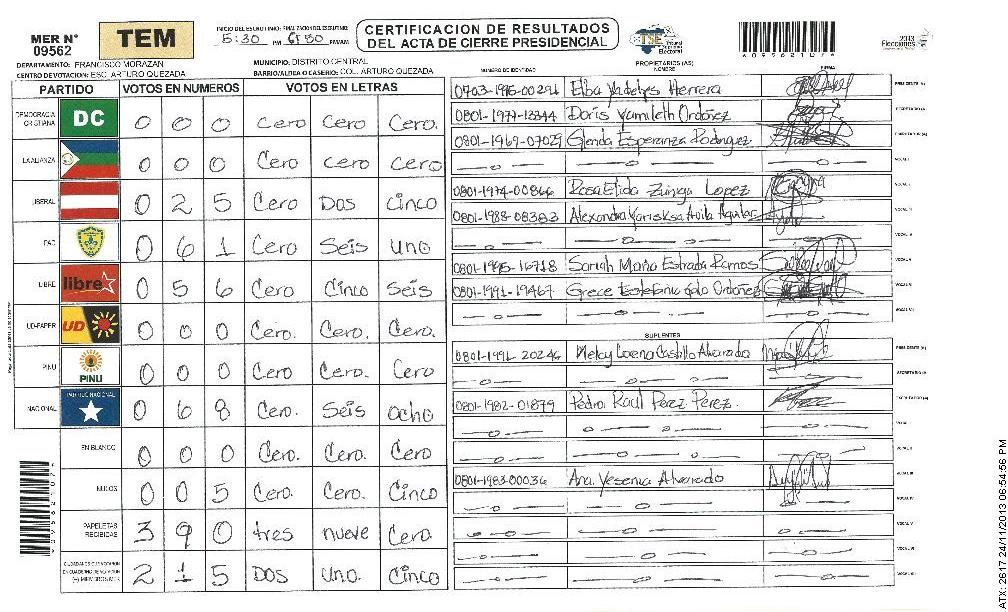 MER N°
09562
TEM
INICIO DEL ESCRUTINIO: FINALIZACION DEL ESCRUTINIO:
5:30 PM 6:30 PM/AM
CERTIFICACION DE RESULTADOS
DEL ACTA DE CIERRE PRESIDENCIAL
TSE
Tribunal
Supremo
Electoral
2013
Elecciones
DEPARTAMENTO: FRANCISCO MORAZAN
MUNICIPIO: DISTRITO CENTRAL
CENTRO DE VOTACION: ESC. ARTURO QUEZADA
BARRIO/ALDEA O CASERIO: COL. ARTURO QUEZADA
PROPIETARIOS (AS)
NUMERO DE IDENTIDAD NOMBRE FIRMA
PARTIDO VOTOS EN NUMEROS VOTOS EN LETRAS
DEMOCRACIA CRISTIANA DC 0 0 0 Cero Cero Cero.
LA ALIANZA 0 0 0 Cero cero cero
LIBERAL 0 2 5 Cero Dos Cinco
PAC 0 6 1 Cero Seis uno
LIBRE libre 0 5 6 Cero Cinco Seis
UD-FAPER UD 0 0 0 Cero. Cero. Cero.
PINU PINU 0 0 0 Cero Cero. Cero
NACIONAL PARTIDO NACIONAL 0 6 8 Cero. Seis ocho
EN BLANCO 0 0 0 Cero. Cero. Cero
NULOS 0 0 5 Cero. Cero. Cinco
PAPELETAS RECIBIDAS 3 9 0 tres nueve Cero
CIUDADANOS QUE VOTARON EN CUADERNO DE VOTACION (+) MIEMBROS MER 2 1 5 Dos Uno. Cinco
0703-1985-00291 Elba Yadelys Herrera PRESIDENTE (A)
0801-1977-12344 Doris Yamileth Ordoñez SECRETARIO (A)
0801-1969-07029 Glenda Esperanza Rodriguez ESCRUTADOR (A)
VOCAL I
0801-1974-00866 Rosa Elida Zuniga Lopez VOCAL II
0801-1988-08383 Alexandra Yariksa Avila Aguilar VOCAL III
VOCAL IV
0801-1995-16718 Sariah Maria Estrada Ramos VOCAL V
0801-1991-19467 Grece Estefania Ordoñez VOCAL VI
VOCAL VII
SUPLENTES
0801-1991-20246 Melcy Lorena Castillo Alvarado PRESIDENTE (A)
SECRETARIO (A)
0801-1982-01879 Pedro Raul Perez Perez. ESCRUTADOR (A)
VOCAL I
VOCAL II
0801-1983-00036 Ana Yesenia Alvarado VOCAL III
VOCAL IV
VOCAL V
VOCAL VI
VOCAL VII
ATX: 2617 24/11/2013 06:54:56 PM